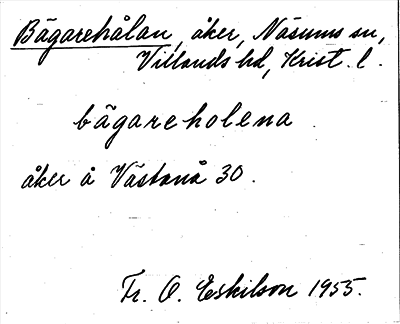 Bägarehålan, åker, Näsums sn,
Villands hd, Krist. l.
bägareholena
åker å Västanå 30.
Fr. O. Eskilson 1955.